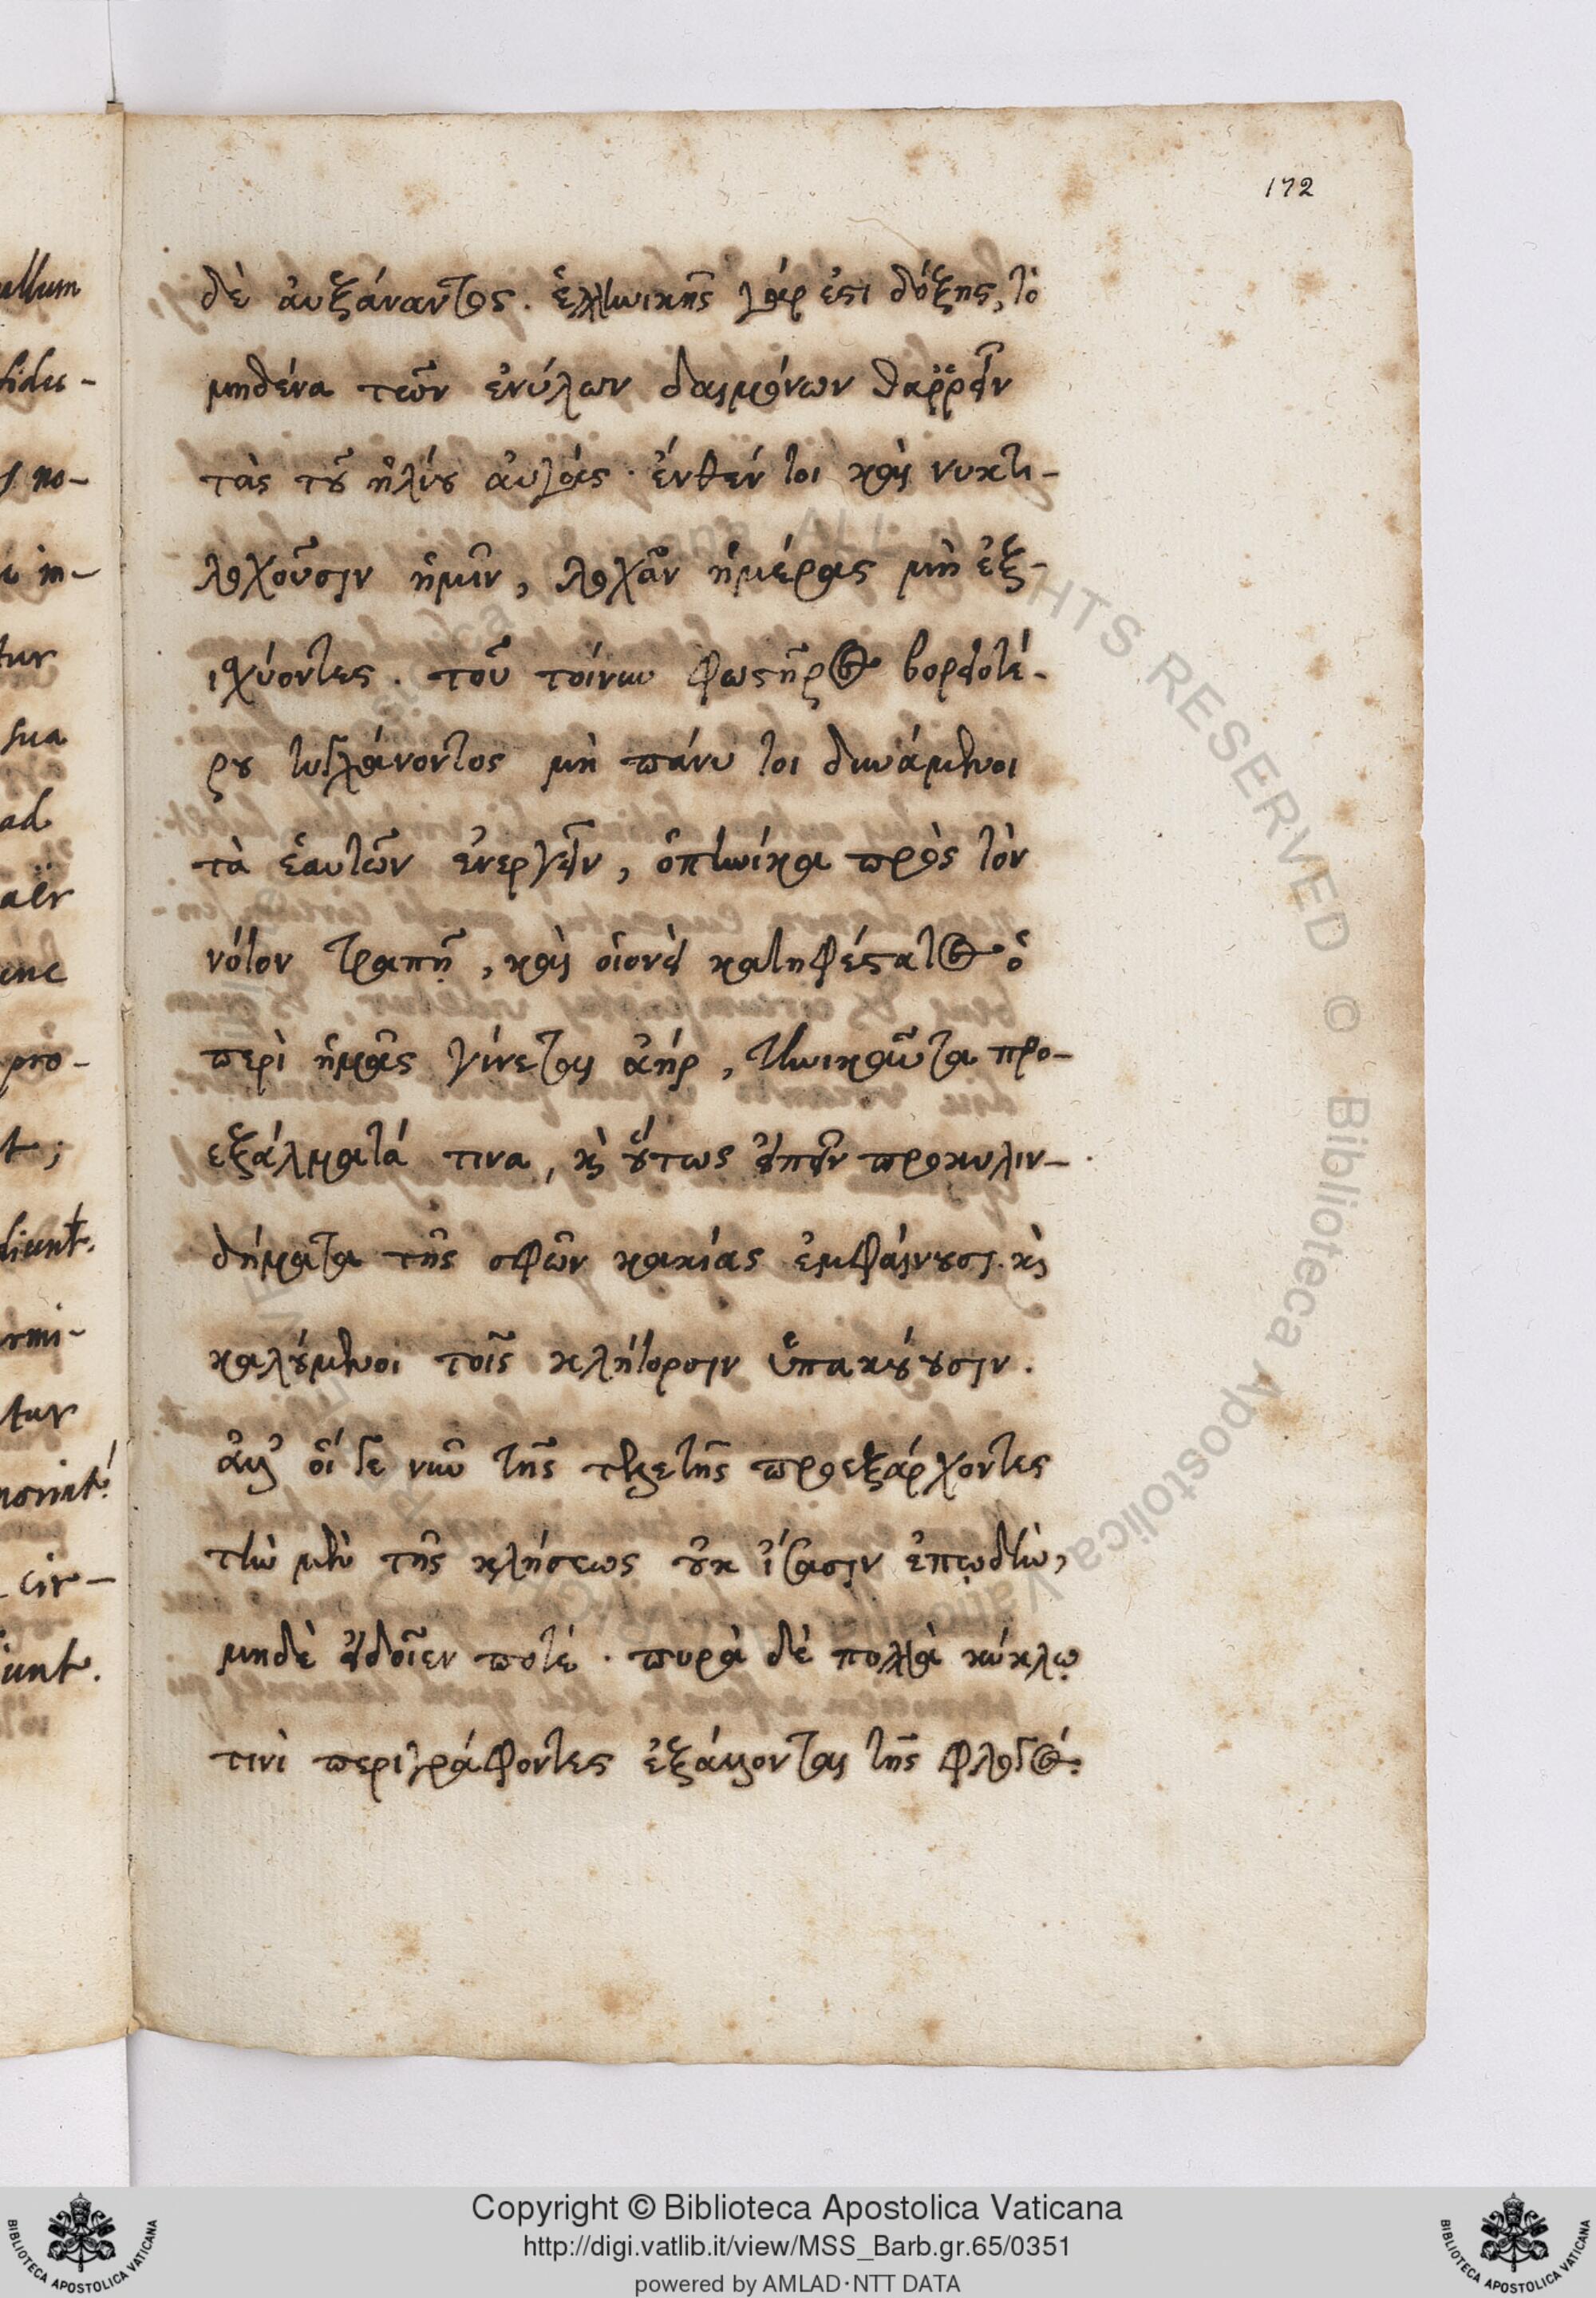 172
δὲ ἀυξάναντος. ἑλληνικῆς γάρ ἐστι δόξης, τὸ
μηδένα τῶν ἐνύλων δαιμόνων θαῤῥεῖν
τὰς τοῦ ἡλίου ἀυγάς· ἐνθέν τοι καὶ νυκτι-
λοχοῦσιν ἡμῖν, λοχᾶν ἡμέρας μὴ ἐξ-
ισχύοντες. τοῦ τοίνυν φωστῆρος βορειοτέ-
ρου τυγχάνοντος μὴ πάνυ τοι δυνάμενοι
τὰ ἑαυτῶν ἐνεργεῖν, ὁπηνίκα πρὸς τὸν
νότον τραπῇ, καὶ οἱονεὶ κατηφέστατος ὁ
περὶ ἡμᾶς γίνεται ἀήρ, τηνικαῦτα προ-
εξάλματά τινα, καὶ οὕτως εἰπεῖν προκυλιν-
δήματα τῆς σφῶν κακίας ἐμφαίνουσι. καὶ
καλούμενοι τοῖς κλήτορσιν ὑπακούουσιν.
ἀλλ' οἵ γε νῦν τῆς τελετῆς προεξάρχοντες
τὴν μὲν τῆς κλήσεως οὐκ ἴσασιν ἐπῳδὴν,
μηδὲ εἰδοῖεν ποτέ· πυρὰ δὲ πολλὰ κύκλῳ
τινὶ περιγράφοντες ἐξάλλονται τῆς φλογός.
ullum
fidu-
no-
in-
tur
sua
ad
aër
pro-
t;
diunt.
rmi-
tur
cir-
iunt.
Copyright © Biblioteca Apostolica Vaticana
http://digi.vatlib.it/view/MSS_Barb.gr.65/0351
powered by AMLAD·NTT DATA
BIBLIOTECA APOSTOLICA VATICANA
BIBLIOTECA APOSTOLICA VATICANA